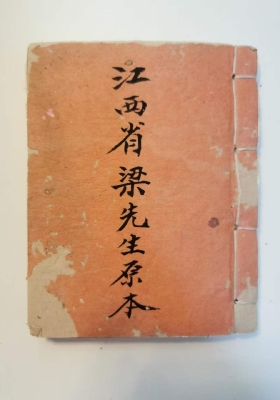 江西省梁先生原本